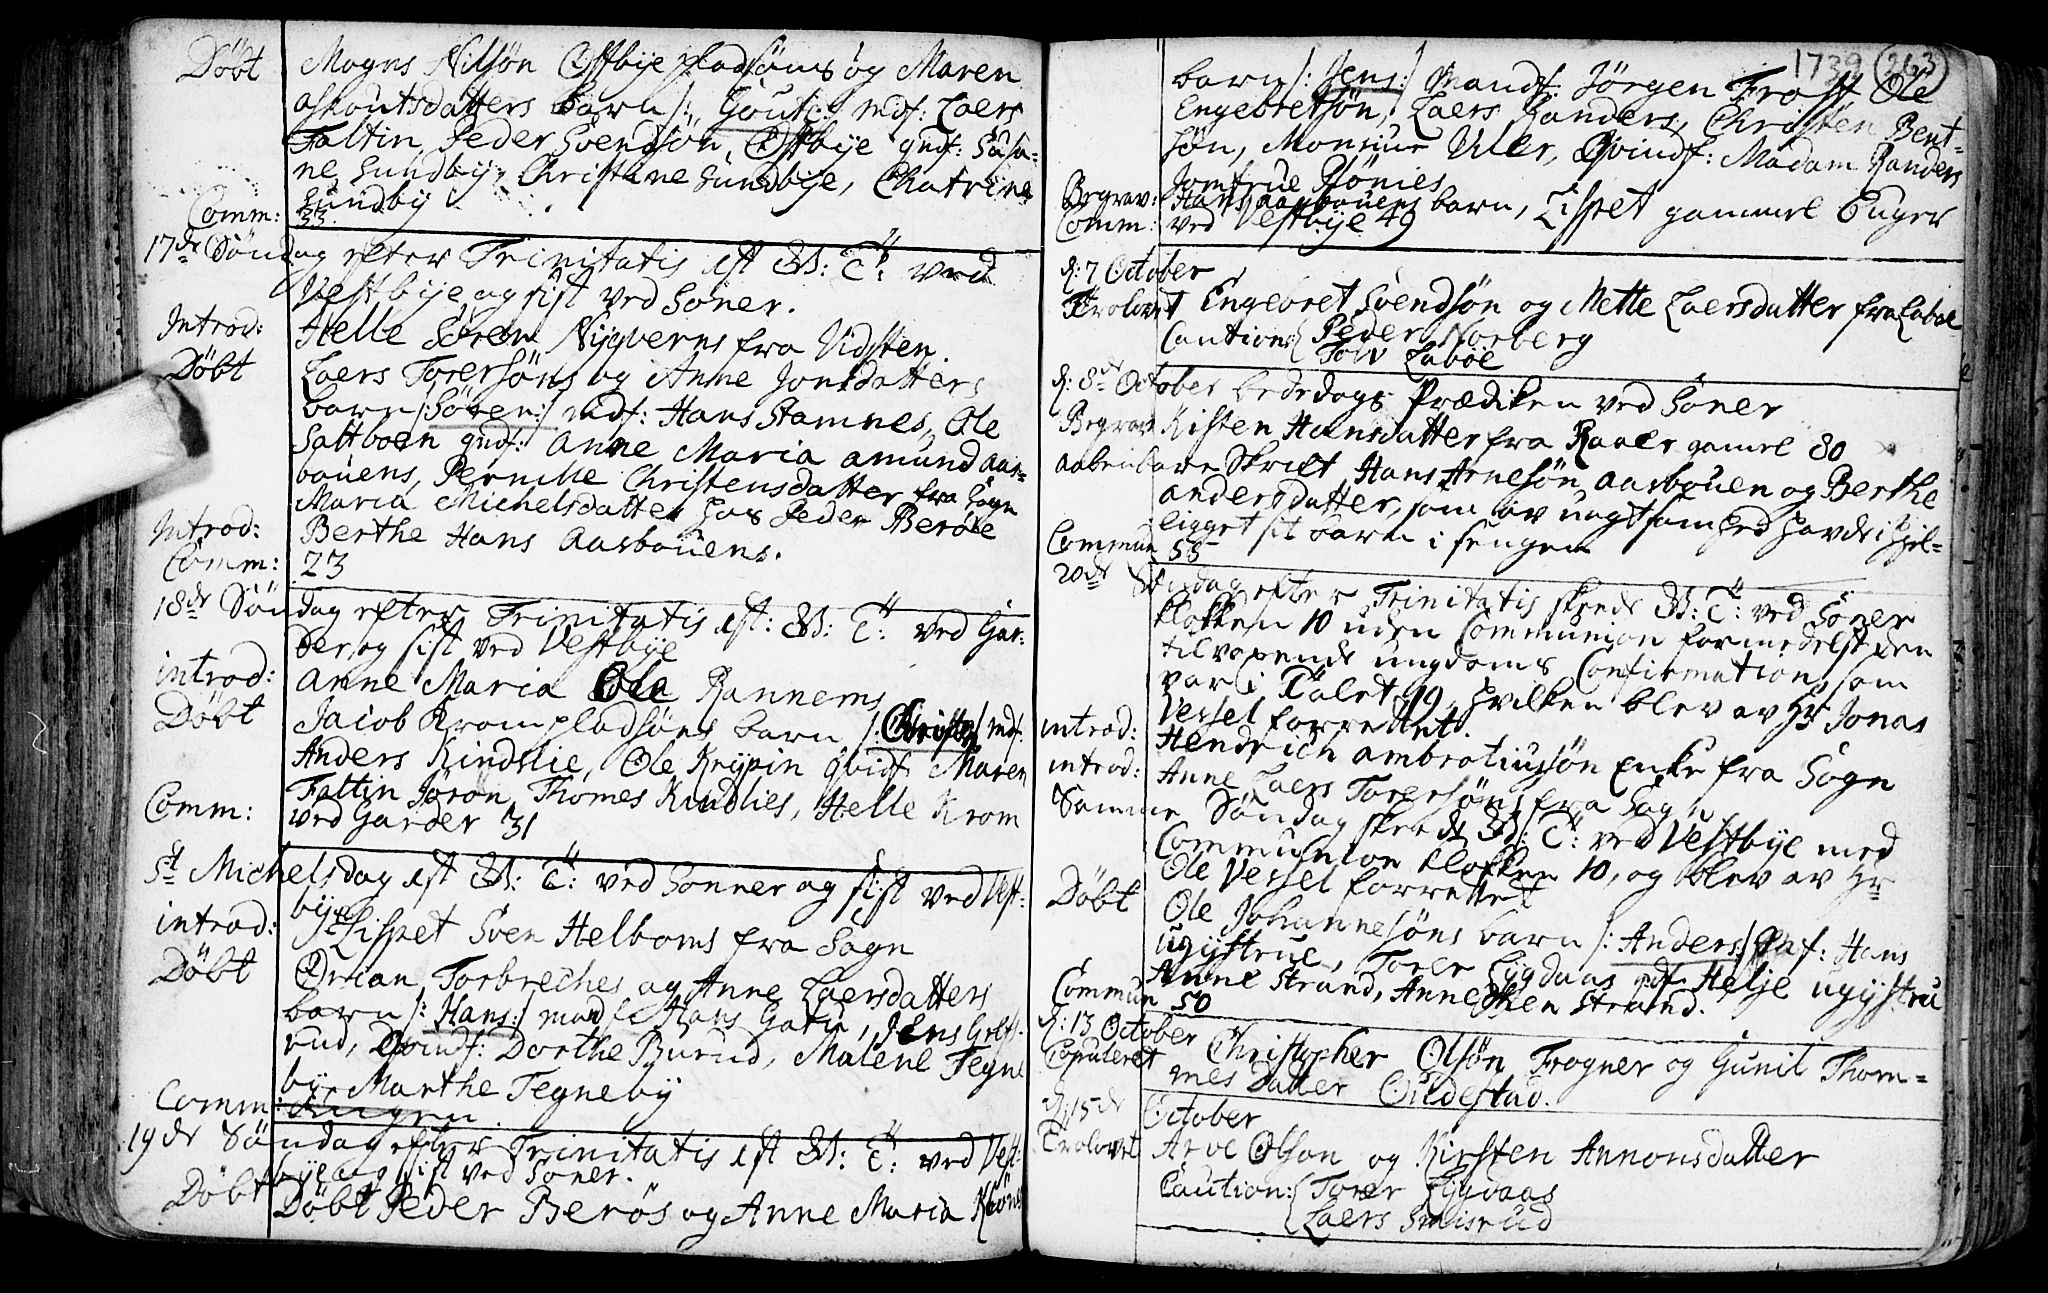 Döbt Mogns Nilsön Østbye pladsöms og Maren
askoutsdatters barn /: Goute :/ mdf: Laers
Faltin, Peder Svendsön Østbye qndf: Susa-
ne Sundby, Christine Sundbye, Chatrine
Sundby
Comm: 33.
17de Söndag efter Trinitatis est ved
Vestbye og sist ved Soner.
Introd: Helle Sören Nygverns fra Vidsten.
Döbt Laers Torersöns og Anne Jonsdatters
barn /: Sören :/ mdf: Hans Stamnes, Ole
Sattboen qndf: Anne Maria amund aas-
bouens, Pernille Christensdatter fra Sogn
Maria Michelsdatter hos Peder Beröe
Introd: Berthe Hans Aasbouens.
Comm: 23
18de Söndag efter Trinitatis est: ved Gar-
der og sist ved Vestbye
introd: Anne Maria Ole Rannems
Döbt Jacob Krom pladsöns barn /: :/ mdf:
Anders Kindslie, Ole Krypin qvidf Maren
Faltin Joron Thomes Kindlies, Helle Krom
Comm: ved Garder 31
St Michelsdag est ved Sonner og sist ved Vest-
bye
introd: Lispet Sven Helboms fra Sogn
Döbt Örian Torbreches og Anne Laersdatters
barn /: Hans :/ mandf: Hans Gatu, Jens
rud, Qvindf: Dorthe Burud, Malene Tegne
by Marthe Tegneby
Comm: Ingen.
19de Söndag efter Trinitatis est ved Vest-
bye og sist ved Soner.
Döbt Döbt Peder Berös og Anne Maria
1739 263
barn /: Jens :/ Mandf: Jörgen Frost Ole
Engebretsön, Laers Randers, Christen Bent-
sön, Monsiur Uller, Qvindf: Madam Randers
Jomfrue Rönies
Begrav: Hans aasbouens barn, Lispet gammel Enger
Comm: ved Vestbye 49
d: 7 October
Trolovet Engebret Svendsön og Mette Laersdatter fra Laboe
Caution: Peder Norberg
Laböe
d: 8de October bededags Prædiken ved Soner
Begrav Kisten Hansdatter fra Raaer gamel 80
aabenbare Skrift Hans Arnesön aasbouen og Berthe
andersdatter, som av uagtsomhed havde ihjel-
ligget sit barn i sengen
Commun 55
20de Söndag efter Trinitatis skede ved Soner
klokken 10 uden Communion formedelst den
tilvoxende ungdoms Confirmation, som
var i Talet 19, hvilken blev av Hr Jonas
Vessel forrettet.
introd: Hendrich ambrotiussön Enke fra Sogn
introd: Anne Laers Torersöns fra Sogn
Samme Söndag skede ved Vestbye med
Communion klokken 10, og blev av Hr
Ole Vessel forrettet
Döbt Ole Johannesöns barn /: Anders :/ mdf: Hans
ugystrue, Torer Lygdaas qdf Helje ugystru
Anne Strand, Anne Sten Strand.
Commun 50
d: 13 October
Copuleret Christopher Olsön Frogner og Gunil Thom-
mes Datter Oildestad.
d: 15de October
Trolovet Arve Olson og Kirsten Annonsdatter
Caution: Torer Lygdaas
Laers Smisrud